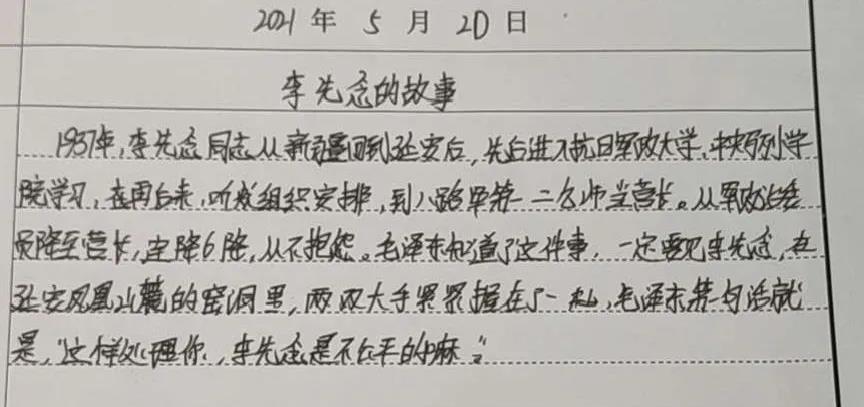 2021年 5月 20日
李先念的故事
1937年,李先念同志从新疆回到延安后,先后进入抗日军政大学、中央马列学
院学习,在再后来,听从组织安排,到八路军第一二九师当营长。从军政委
员降至营长,连降6级,从不抱怨。毛泽东知道了这件事,一定要见李先念,在
延安凤凰山麓的窑洞里,两双大手紧紧握在了一起,毛泽东第句话就
是,"这样处理你,李先念是不公平的嘛。"